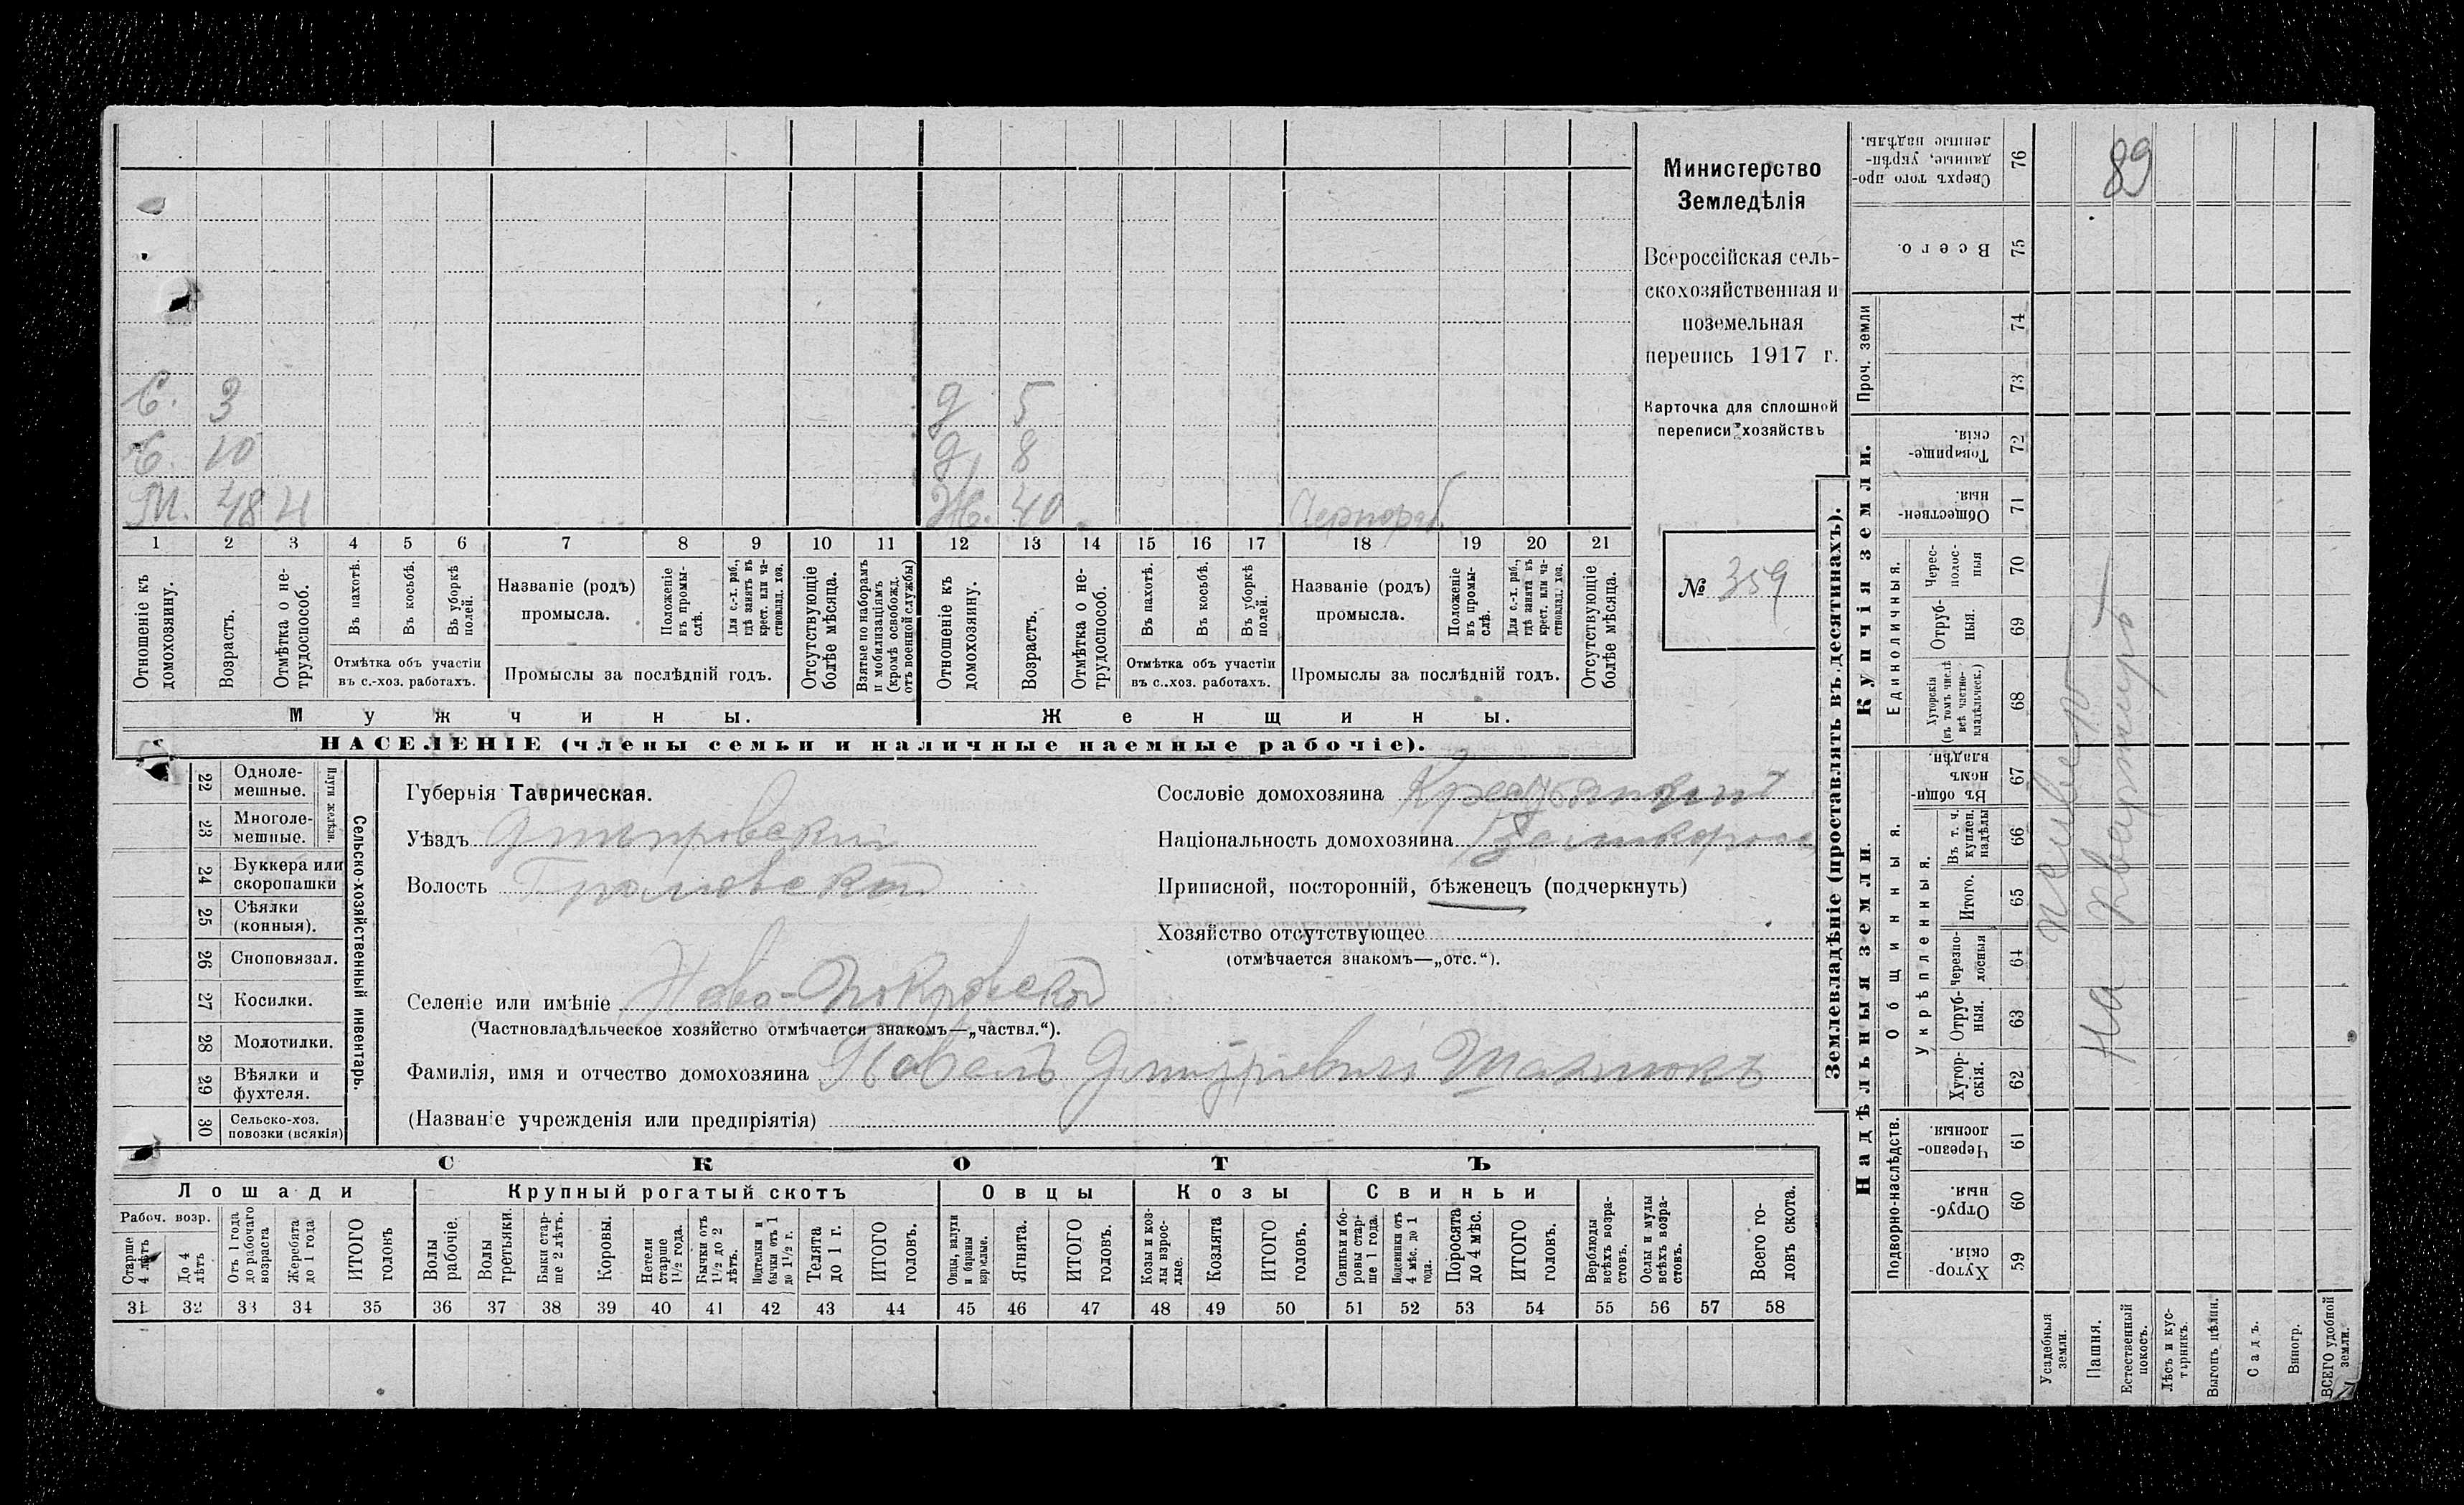 Министерство
Земледѣлія
Всероссійская сель-
скохозяйственная и
поземельная
перепись 1917 г.
Карточка для сплошной
переписи хозяйствъ
№ 359
89
С. 3 д 5
С. 10 д 8
М. 48 н Ж. 40 Чернораб.
1 2 3 4 5 6 7 8 9 10 11 12 13 14 15 16 17 18 19 20 21
Отношеніе къ домохозяину.
Возрастъ.
Отмѣтка о не-трудоспособ.
Въ пахотѣ.
Въ косьбѣ.
Въ уборкѣ полей.
Отмѣтка объ участіи
въ с.-хоз. работахъ.
Названіе (родъ)
промысла.
Положеніе въ промы-слѣ.
Для с.-х. раб., гдѣ занятъ въ крест. или ча-стновлад. хоз.
Промыслы за послѣдній годъ.
Отсутствующіе болѣе мѣсяца.
Взятые по наборамъ и мобилизаціямъ (кромѣ освобожд. отъ военной службы)
Отношеніе къ домохозяину.
Возрастъ.
Отмѣтка о не-трудоспособ.
Въ пахотѣ.
Въ косьбѣ.
Въ уборкѣ полей.
Отмѣтка объ участіи
въ с.-хоз. работахъ.
Названіе (родъ)
промысла.
Положеніе въ промы-слѣ.
Для с.-х. раб., гдѣ занята въ крест. или ча-стновлад. хоз.
Промыслы за послѣдній годъ.
Отсутствующіе болѣе мѣсяца.
Мужчины. Женщины.
НАСЕЛЕНІЕ (члены семьи и наличные наемные рабочіе).
22 Одноле-мешные.
23 Многоле-мешные.
Плуги желѣзн.
24 Буккера или скоропашки
25 Сѣялки (конныя).
26 Сноповязал.
27 Косилки.
28 Молотилки.
29 Вѣялки и фухтеля.
30 Сельско-хоз. повозки (всякія)
Сельско-хозяйственный инвентарь.
Губернія Таврическая.
Уѣздъ Днѣпровскій
Волость
Селеніе или имѣніе Ново-Покровской
(Частновладѣльческое хозяйство отмѣчается знакомъ—„частвл.“).
Фамилія, имя и отчество домохозяина Павелъ Дмитріевичъ
(Названіе учрежденія или предпріятія)
Сословіе домохозяина
Національность домохозяина Великоросс
Приписной, посторонній, бѣженецъ (подчеркнуть)
Хозяйство отсутствующее
(отмѣчается знакомъ—„отс.“).
СКОТЪ
Лошади Крупный рогатый скотъ Овцы Козы Свиньи
Рабоч. возр.
Старше 4 лѣтъ
До 4 лѣтъ
Отъ 1 года до рабочаго возраста
Жеребята до 1 года
ИТОГО головъ
Волы рабочіе.
Волы третьяки.
Быки стар-ше 2 лѣтъ.
Коровы.
Нетели старше 1½ года.
Бычки отъ 1½ до 2 лѣтъ.
Подтелки и бычки отъ 1 до 1½ г.
Телята до 1 г.
ИТОГО головъ.
Овцы, валухи и бараны взрослые.
Ягнята.
ИТОГО головъ.
Козы и коз-лы взрос-лые.
Козлята
ИТОГО головъ.
Свиньи и бо-ровы стар-ше 1 года.
Подсвинки отъ 4 мѣс. до 1 года.
Поросята до 4 мѣс.
ИТОГО головъ.
Верблюды всѣхъ возра-стовъ.
Ослы и мулы всѣхъ возра-стовъ.
Всего го-ловъ скота.
31 32 33 34 35 36 37 38 39 40 41 42 43 44 45 46 47 48 49 50 51 52 53 54 55 56 57 58
Землевладѣніе (проставлять въ десятинахъ).
Надѣльныя земли. Купчія земли.
Подворно-наслѣдств.
Общинныя.
Укрѣпленныя.
Единоличныя.
Проч. земли
Хутор-скія. 59
Отруб-ныя. 60
Черезпо-лосныя. 61
Хутор-скія. 62
Отруб-ныя. 63
Черезпо-лосныя 64
Итого. 65
Въ т. ч. куплен. надѣлы 66
Въ общи-номъ владѣн. 67
Хуторскія (въ томъ числѣ всѣ частно-владѣльческ.) 68
Отруб-ныя. 69
Черес-полос-ныя 70
Обществен-ныя. 71
Товарище-скія. 72
73
74
Всего. 75
Сверхъ того про-данные, укрѣп-ленные надѣлы. 76
Усадебныя земли.
Пашня.
Естественный покосъ.
Лѣсъ и кус-тарникъ.
Выгонъ цѣлин.
Садъ.
Виногр.
ВСЕГО удобной земли.
живетъ
на квартирѣ